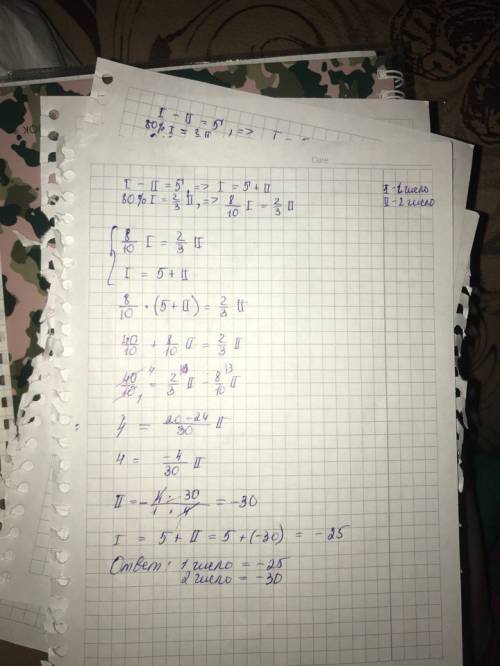 I - II = 5
80% I = II, =>
Date
I - II = 5, => I = 5 + II
80% I = 2/3 II, => 8/10 I = 2/3 II
I - 1 число
II - 2 число
{ 8/10 I = 2/3 II
I = 5 + II
8/10 · (5 + II) = 2/3 II
40/10 + 8/10 II = 2/3 II
40/10 = 2/3 II - 8/10 II
4 = 20-24/30 II
4 = -4/30 II
II = - 4 · 30/1 · 4 = -30
I = 5 + II = 5 + (-30) = -25
Ответ: 1 число = -25
2 число = -30